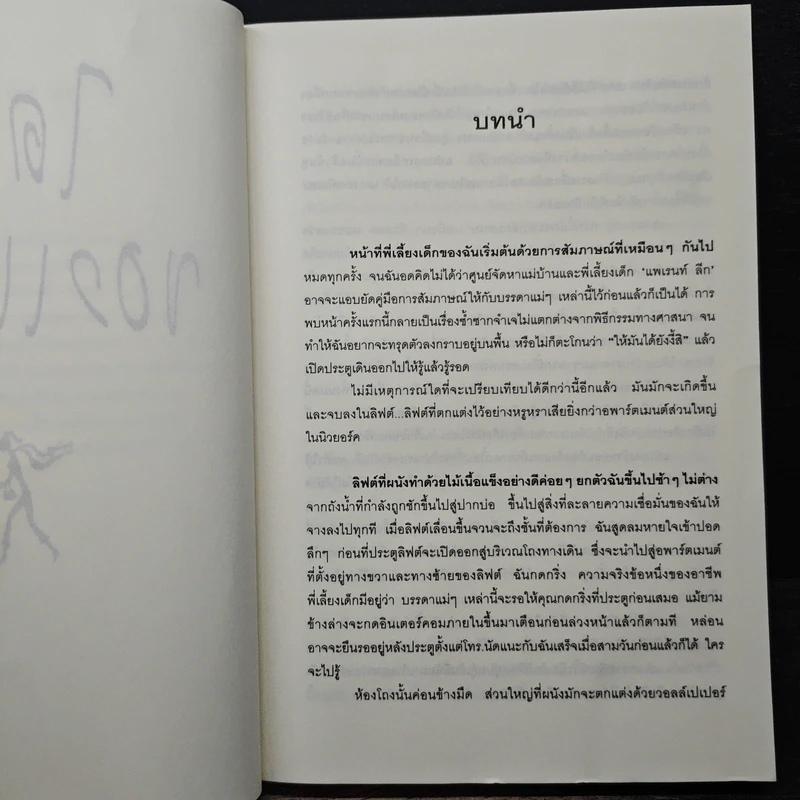 บทนำ
หน้าที่พี่เลี้ยงเด็กของฉันเริ่มต้นด้วยการสัมภาษณ์ที่เหมือนๆ กันไป
หมดทุกครั้ง จนฉันอดคิดไม่ได้ว่าศูนย์จัดหาแม่บ้านและพี่เลี้ยงเด็ก ‘แพเรนท์ ลีก’
อาจจะแอบยัดคู่มือการสัมภาษณ์ให้กับบรรดาแม่ๆ เหล่านี้ไว้ก่อนแล้วก็เป็นได้ การ
พบหน้าครั้งแรกนี้กลายเป็นเรื่องซ้ำซากจำเจไม่แตกต่างจากพิธีกรรมทางศาสนา จน
ทำให้ฉันอยากจะทรุดตัวลงกราบอยู่บนพื้น หรือไม่ก็ตะโกนว่า “ให้มันได้ยังงี้สิ” แล้ว
เปิดประตูเดินออกไปให้รู้แล้วรู้รอด
ไม่มีเหตุการณ์ใดที่จะเปรียบเทียบได้ดีกว่านี้อีกแล้ว มันมักจะเกิดขึ้น
และจบลงในลิฟต์...ลิฟต์ที่ตกแต่งไว้อย่างหรูหราเสียยิ่งกว่าอพาร์ตเมนต์ส่วนใหญ่
ในนิวยอร์ค
ลิฟต์ที่ผนังทำด้วยไม้เนื้อแข็งอย่างดีค่อยๆ ยกตัวฉันขึ้นไปช้าๆ ไม่ต่าง
จากถังน้ำที่กำลังถูกชักขึ้นไปสู่ปากบ่อ ขึ้นไปสู่สิ่งที่ละลายความเชื่อมั่นของฉันให้
จางลงไปทุกที เมื่อลิฟต์เลื่อนขึ้นจวนจะถึงชั้นที่ต้องการ ฉันสูดลมหายใจเข้าปอด
ลึกๆ ก่อนที่ประตูลิฟต์จะเปิดออกสู่บริเวณโถงทางเดิน ซึ่งจะนำไปสู่อพาร์ตเมนต์
ที่ตั้งอยู่ทางขวาและทางซ้ายของลิฟต์ ฉันกดกริ่ง ความจริงข้อหนึ่งของอาชีพ
พี่เลี้ยงเด็กมีอยู่ว่า บรรดาแม่ๆ เหล่านี้จะรอให้คุณกดกริ่งที่ประตูก่อนเสมอ แม้ยาม
ข้างล่างจะกดอินเตอร์คอมภายในขึ้นมาเตือนก่อนล่วงหน้าแล้วก็ตามที หล่อน
อาจจะยืนรออยู่หลังประตูตั้งแต่โทร.นัดแนะกับฉันเสร็จเมื่อสามวันก่อนแล้วก็ได้ ใคร
จะไปรู้
ห้องโถงนั้นค่อนข้างมืด ส่วนใหญ่ที่ผนังมักจะตกแต่งด้วยวอลล์เปเปอร์